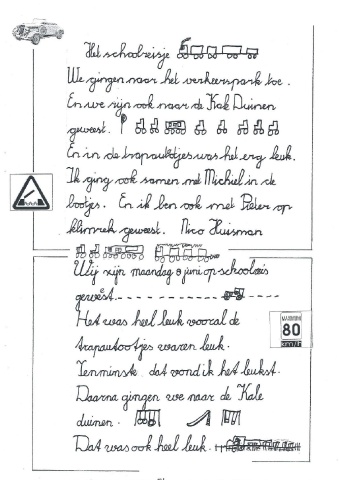 Het schoolreisje
We gingen naar het verkeerspark toe.
En we zijn ook naar de Kale Duinen
geweest.
En in de trapautotjes was het erg leuk.
Ik ging ook samen met Michiel in de
bootjes. En ik ben ook met Pieter op
klimrek geweest. Nico Huisman
Wij zijn maandag 8 juni op schoolreis
geweest.
Het was heel leuk vooral de
trapautootjes waren leuk.
Tenminste dat vond ik het leukst.
Daarna gingen we naar de Kale
duinen.
Dat was ook heel leuk.
80